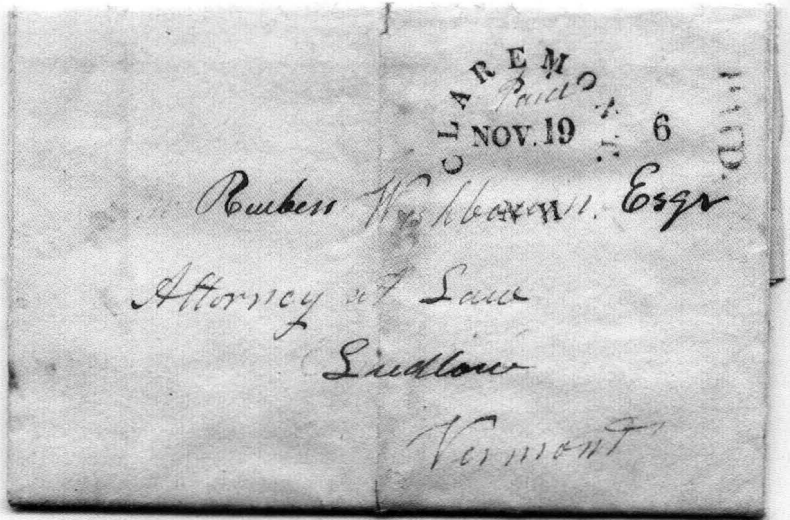 CLAREMONT
Paid
NOV. 19
6
PAID
N.H.
Reuben Washburn. Esqr
Attorney at Law
Ludlow
Vermont